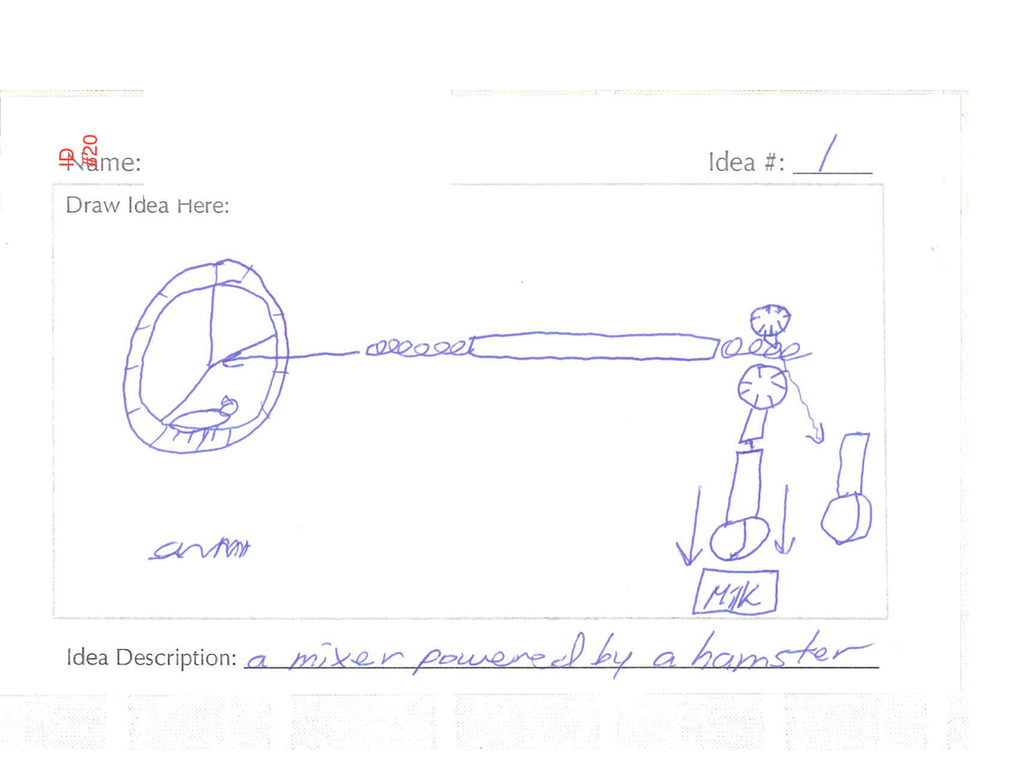 ID
#20
Name:
Idea #: 1
Draw Idea Here:
Milk
Idea Description: a mixer powered by a hamster